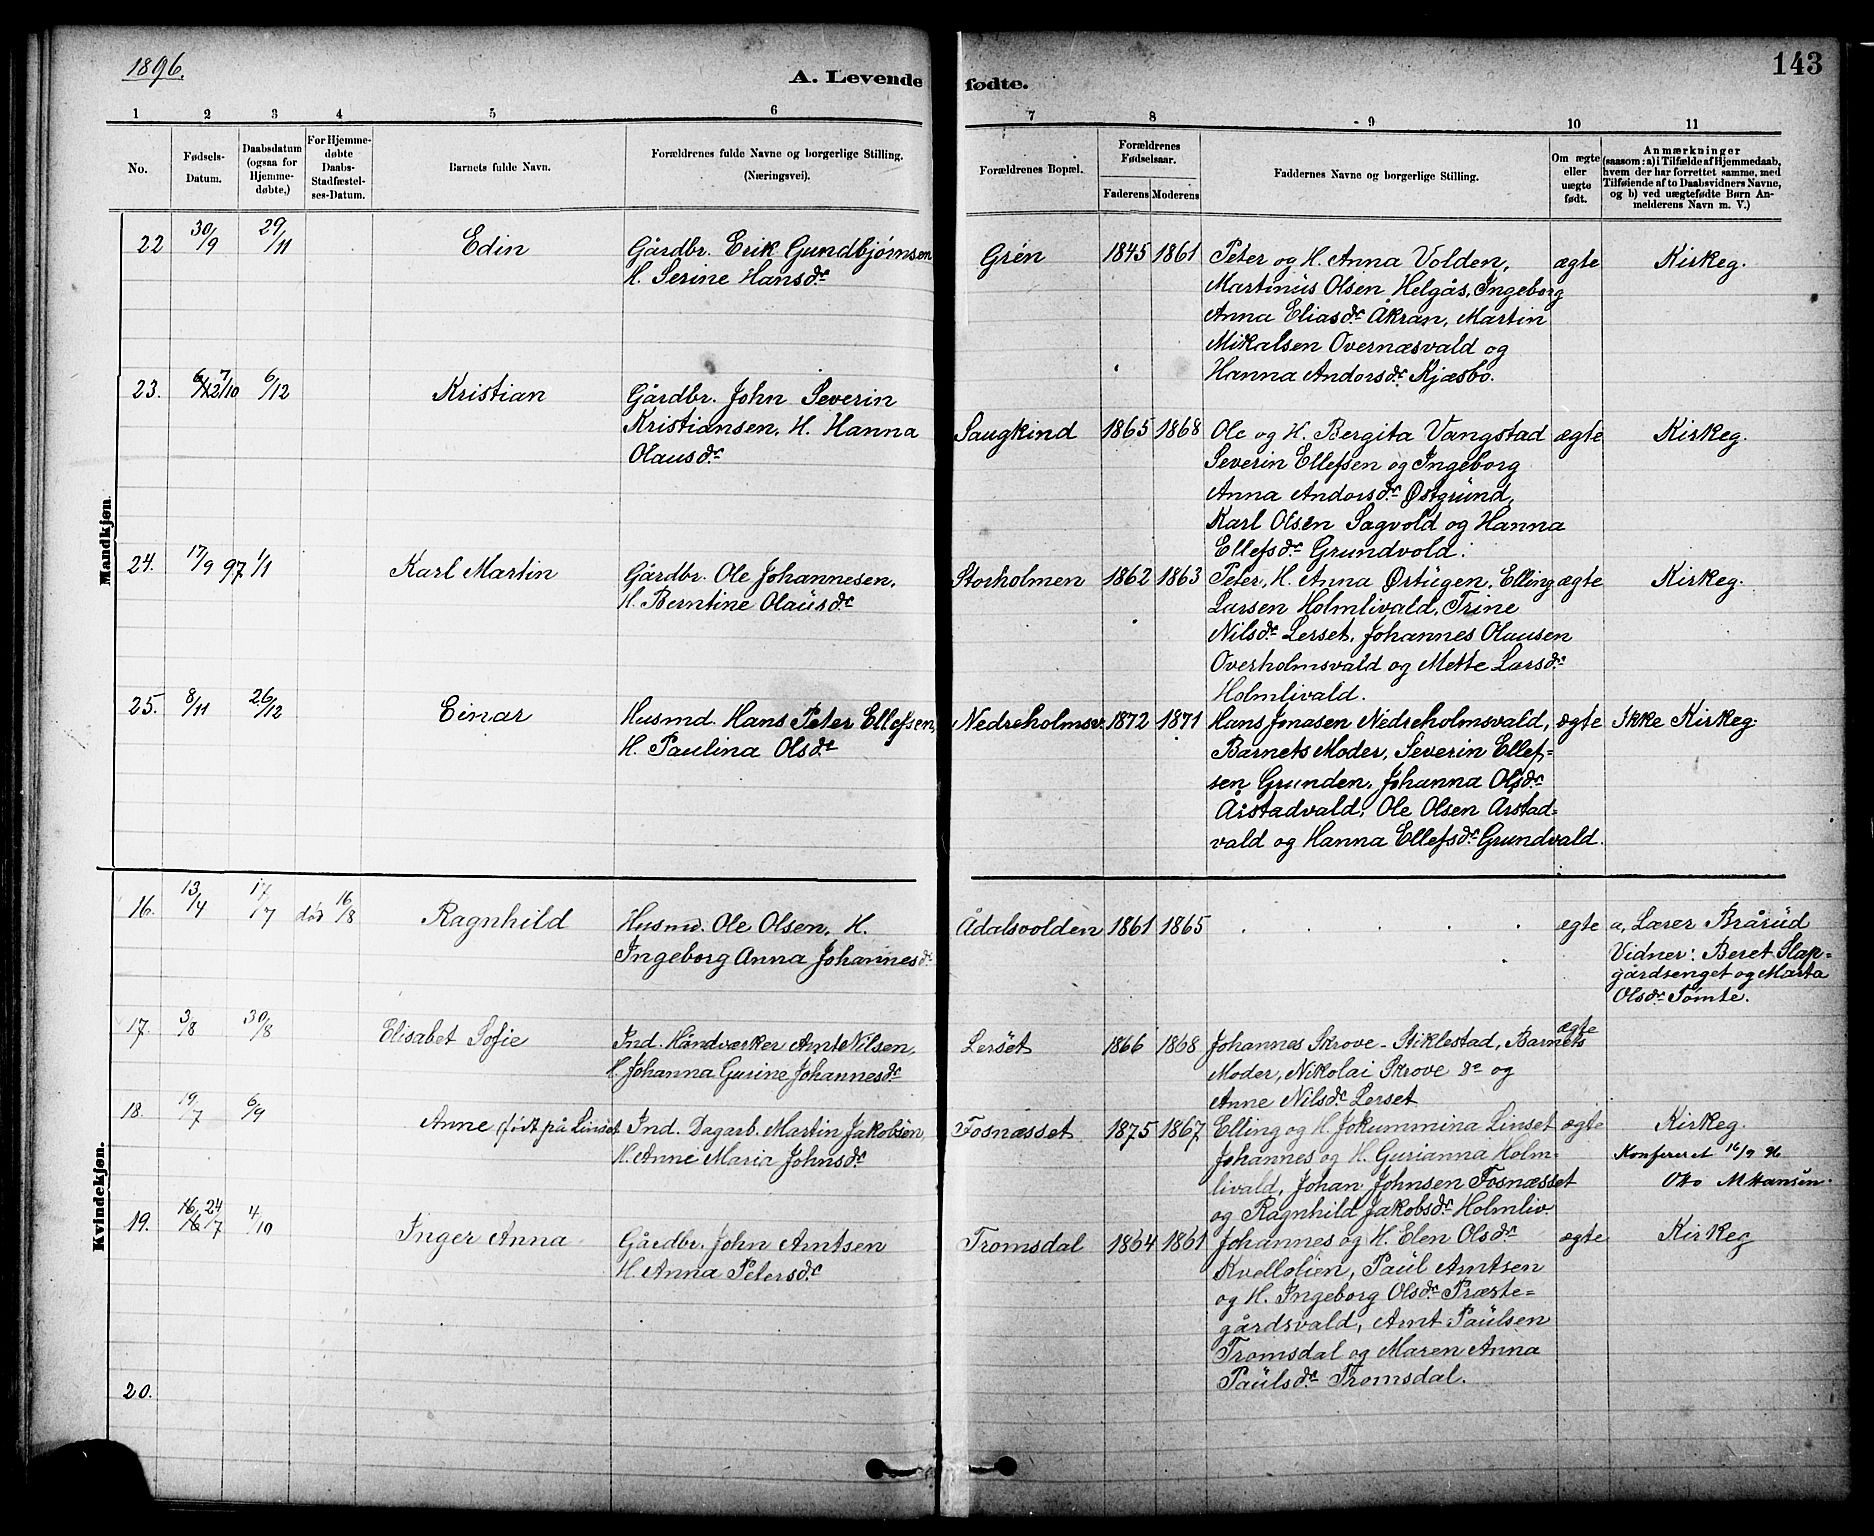 1896.
A. Levende fødte.
143
1 2 3 4 5 6 7 8 9 10 11
No.
Fødsels-
Datum.
Daabsdatum
(ogsaa for
Hjemme-
døbte,)
For Hjemme-
døbte
Daabs-
Stadfæstel-
ses-Datum.
Barnets fulde Navn.
Forældrenes fulde Navne og borgerlige Stilling.
(Næringsvei).
Forældrenes Bopæl.
Forældrenes
Fødselsaar.
Faderens Moderens
Faddernes Navne og borgerlige Stilling.
Om ægte
eller
uægte
født.
Anmærkninger
(saasom: a) i Tilfælde af Hjemmedaab,
hvem der har forrettet samme, med
Tilføiende af to Daabsvidners Navne,
og b) ved uægtefødte Børn An-
melderens Navn m. V.)
Mandkjøn.
22 30/9 29/11 Edin Gårdbr. Erik Gundbjørnsen Grén 1845 1861 Peter og H. Anna Volden, ægte Kirkeg.
H. Serine Hansdr. Martinus Olsen Helgås, Ingeborg
Anna Eliasdr. Åkran, Martin
Mikalsen Overnæsvald og
Hanna Andorsdr. Kjæsbo.
23. 7/10 6/12 Kristian Gårdbr. John Severin
Kristiansen, H. Hanna Saugkind 1865 1868 Ole og H. Bergita Vangstad ægte Kirkeg.
Olausdr. Severin Ellefsen og Ingeborg
Anna Andorsdr. Østgrund,
Karl Olsen Sagvold og Hanna
Ellefsdr. Grundvold.
24. 17/9 97 1/1 Karl Martin Gårdbr. Ole Johannesen, Storholmen 1862 1863 Peter, H. Anna Ørtugen, Elling ægte Kirkeg.
H. Berntine Olausdr. Larsen Holmlivald, Trine
Nilsdr. Lerset, Johannes Olausen
Overholmsvald og Mette Larsdr.
Holmlivald.
25. 8/11 26/12 Einar Husmd. Hans Peter Ellefsen, Nedreholmsv. 1872 1871 Hans Jonasen Nedreholmsvald, ægte Ikke Kirkeg.
H. Paulina Olsdr. Barnets Moder, Severin Ellef-
sen Grunden, Johanna Olsdr.
Årstadvald, Ole Olsen Arstad-
vald og Hanna Ellefsdr. Grundvald.
Kvindekjøn.
16. 13/4 17/7 døv 16/8 Ragnhild Husmd. Ole Olsen, H. Ådalsvolden 1861 1865 ægte a, Lærer Bråsüd
Ingeborg Anna Johannesdr. Vidner: Beret Slap-
gårdsenget og Marta
Olsdr. Tømte.
17. 3/8 30/8 Elisabet Sofie Ind. Håndværker Arnt Nilsen, Lersét 1866 1868 Johannes Skrove - Stiklestad, Barnets ægte
H. Johanna Gurine Johannesdr. Moder, Nikolai Skrove do og
Anne Nilsdr. Lerset
18. 19/7 6/9 Anne (født på Linset Ind. Dagarb. Martin Jakobsen, Fosnæsset 1875 1867 Elling og H. Jokummina Linset ægte Kirkeg.
H. Anne Maria Johnsdr. Johannes og H. Gurianna Holm- Konfereret 16/9 96
livald, Johan Johnsen Fosnæsset Otto M Hansen.
og Ragnhild Jakobsdr. Holmliv.
19. 24/7 4/10 Inger Anna Gårdbr. John Arntsen Tromsdal 1864 1861 Johannes og H. Elen Olsdr. ægte Kirkeg
H. Anna Petersdr. Kvellolien, Paul Arntsen
og H. Ingeborg Olsdr. Præste-
gårdsvald, Arnt Paulsen
Tromsdal og Maren Anna
Paulsdr. Tromsdal.
20.